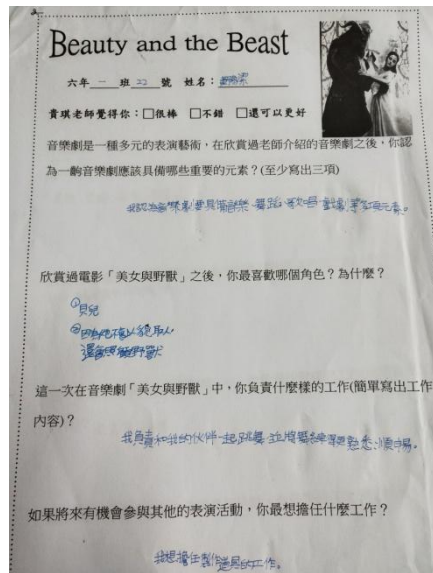 Beauty and the Beast
六年 一 班 22 號 姓名：
貴琪老師覺得你：□很棒 □不錯 □還可以更好
音樂劇是一種多元的表演藝術，在欣賞過老師介紹的音樂劇之後，你認
為一齣音樂劇應該具備哪些重要的元素？(至少寫出三項)
我認為音樂劇要具備音樂、舞蹈、歌唱、戲劇等元素。
欣賞過電影「美女與野獸」之後，你最喜歡哪個角色？為什麼？
①貝兒
②因為她不會以貌取人，
還會照顧野獸
這一次在音樂劇「美女與野獸」中，你負責什麼樣的工作(簡單寫出工作
內容)？
我負責和我的伙伴一起跳舞，並將舞練習熟悉、順暢。
如果將來有機會參與其他的表演活動，你最想擔任什麼工作？
我想擔任製作道具的工作。